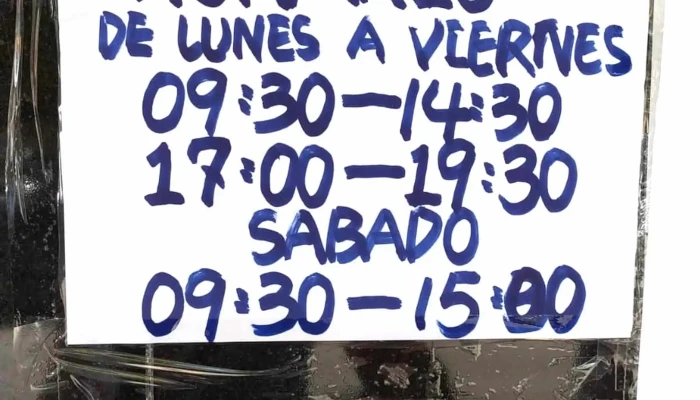 DE LUNES A VIERNES
09:30—14:30
17:00—19:30
SABADO
09:30—15:00